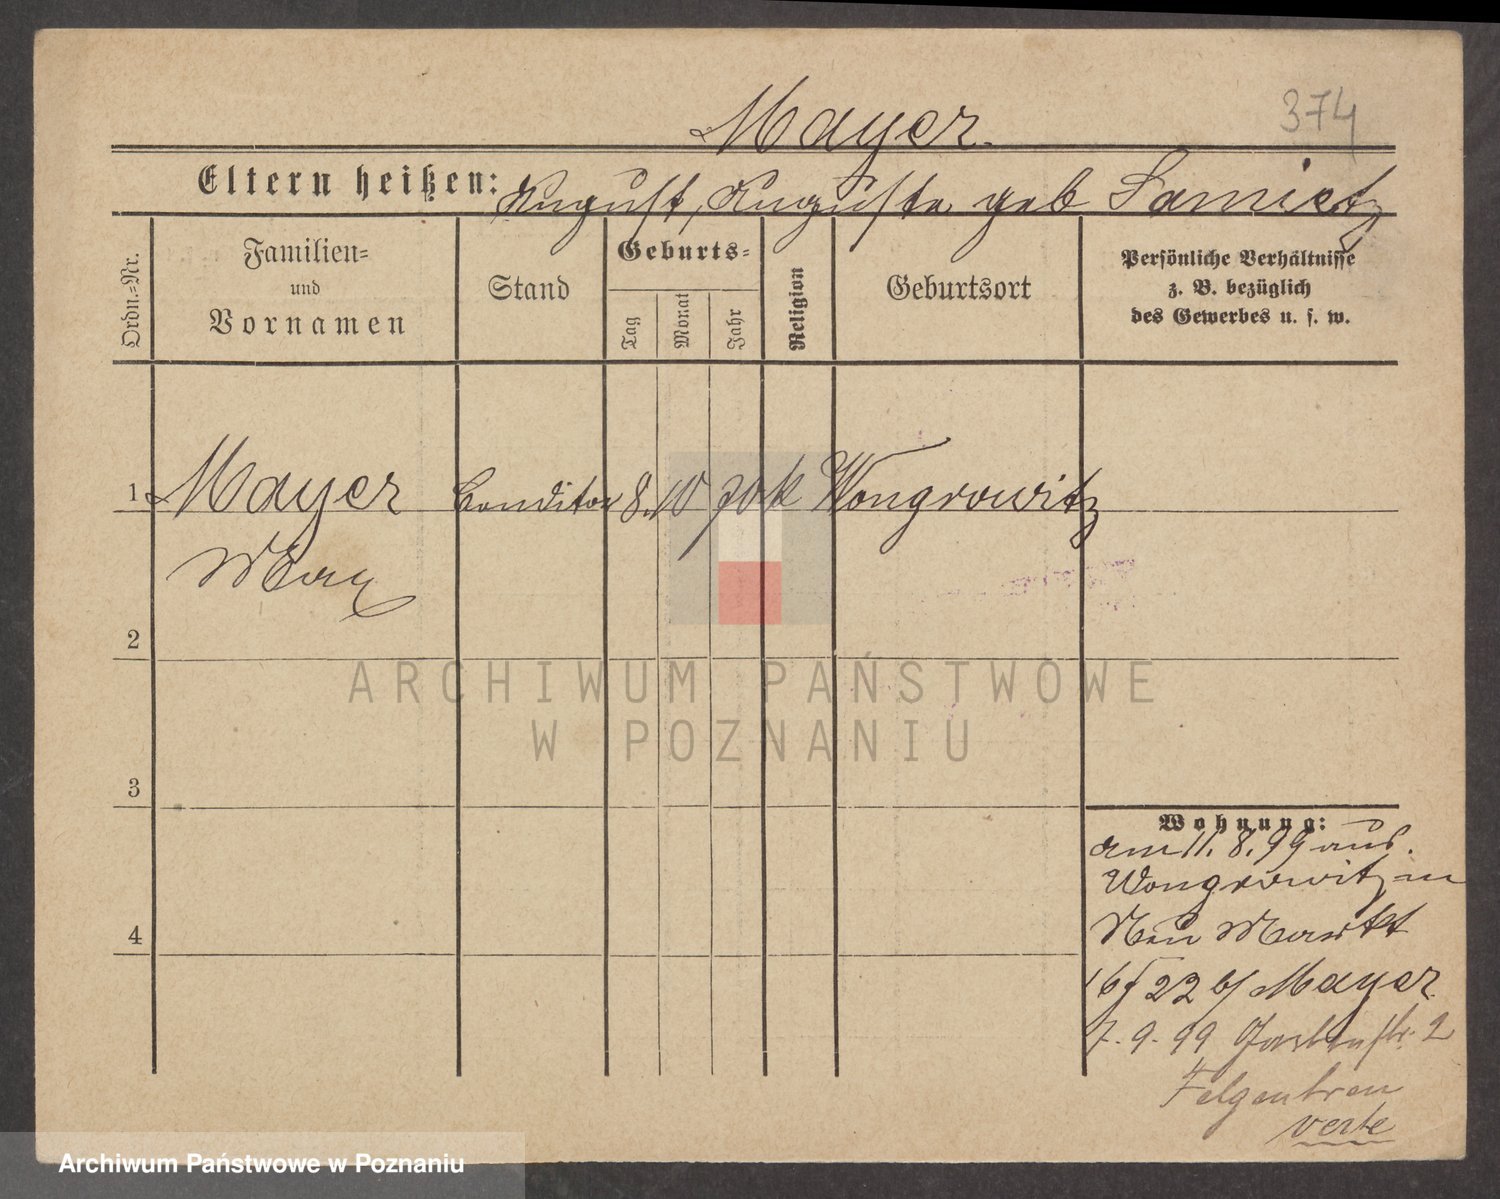 Mayer.
374
Eltern heißen: August, Auguste geb Samietz
Ordn.-Nr.
Familien-
und
Vornamen
Stand
Geburts-
Tag
Monat
Jahr
Religion
Geburtsort
Persönliche Verhältnisse
z. B. bezüglich
des Gewerbes u. s. w.
1 Mayer Conditor 8. 10 70 k Wongrowitz
Max
2
3
4
Wohnung:
am 11. 8. 99 aus.
Wongrowitz in
Neu Markt
22 b/ Mayer.
7. 9. 99 Gartenstr. 2
Felgentreu
verte
ARCHIWUM PAŃSTWOWE
W POZNANIU
Archiwum Państwowe w Poznaniu